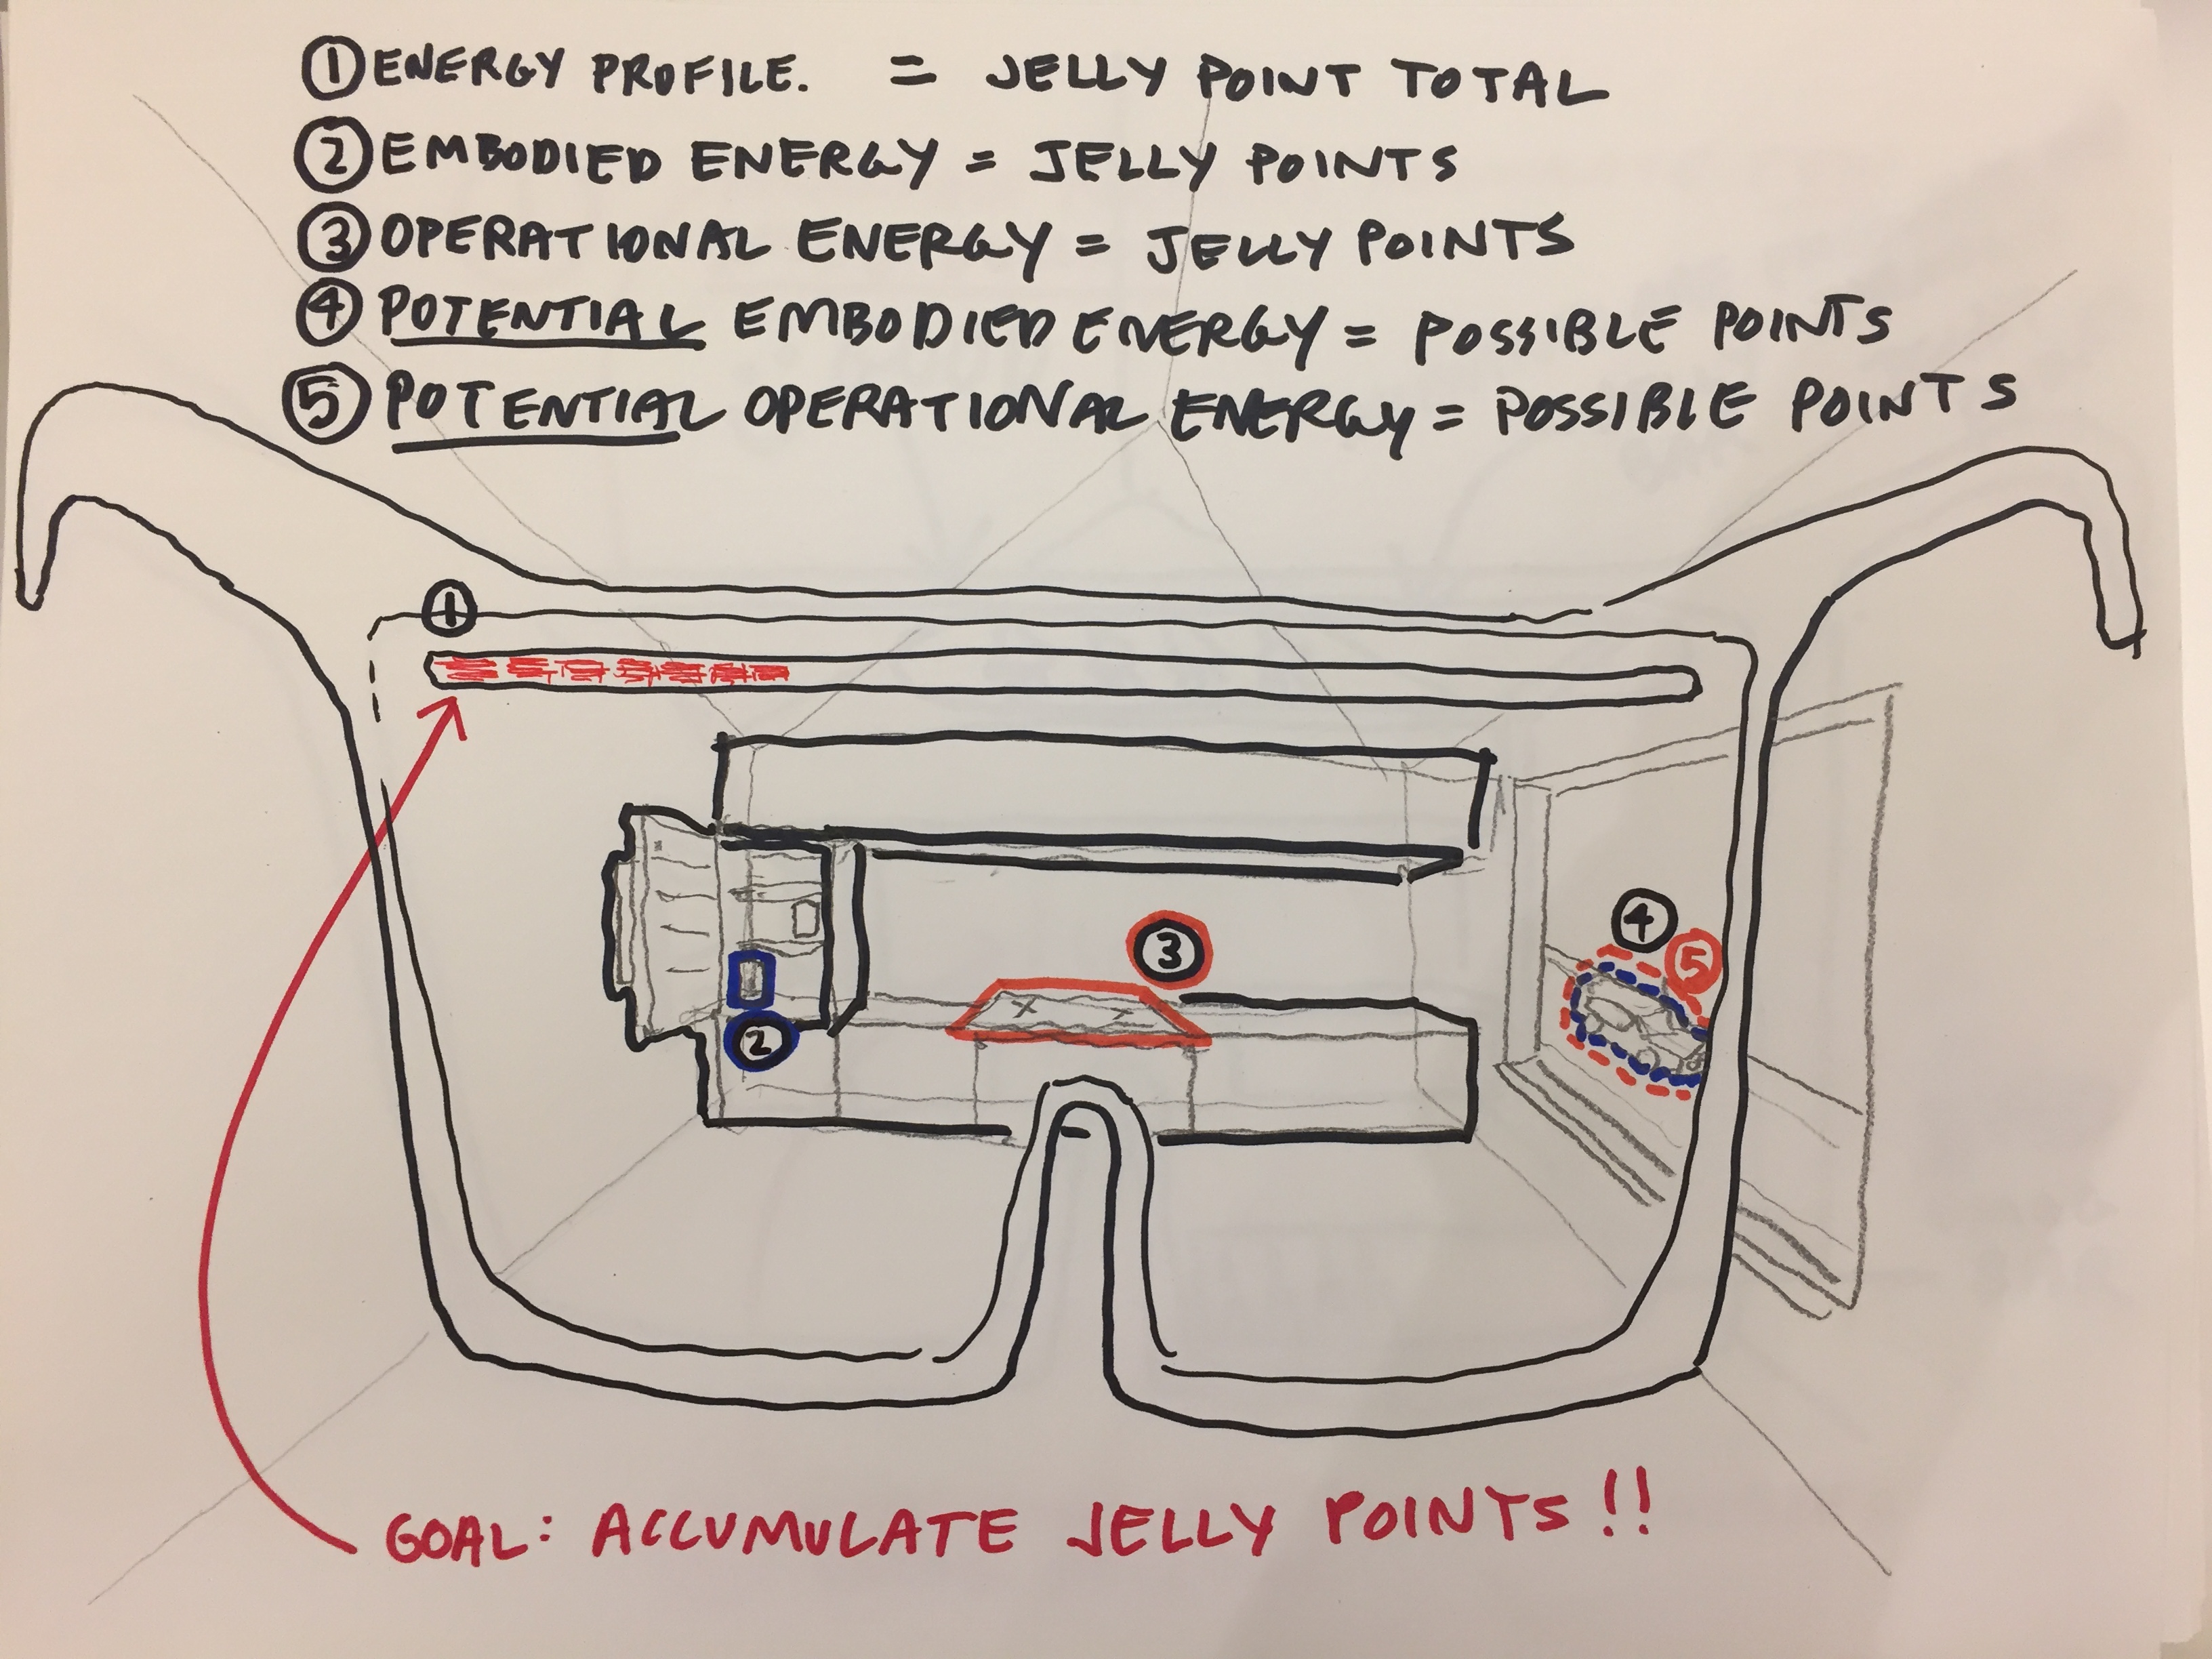 ① ENERGY PROFILE. = JELLY POINT TOTAL
② EMBODIED ENERGY = JELLY POINTS
③ OPERATIONAL ENERGY = JELLY POINTS
④ POTENTIAL EMBODIED ENERGY = POSSIBLE POINTS
⑤ POTENTIAL OPERATIONAL ENERGY = POSSIBLE POINTS
①
④
③
⑤
②
GOAL: ACCUMULATE JELLY POINTS!!